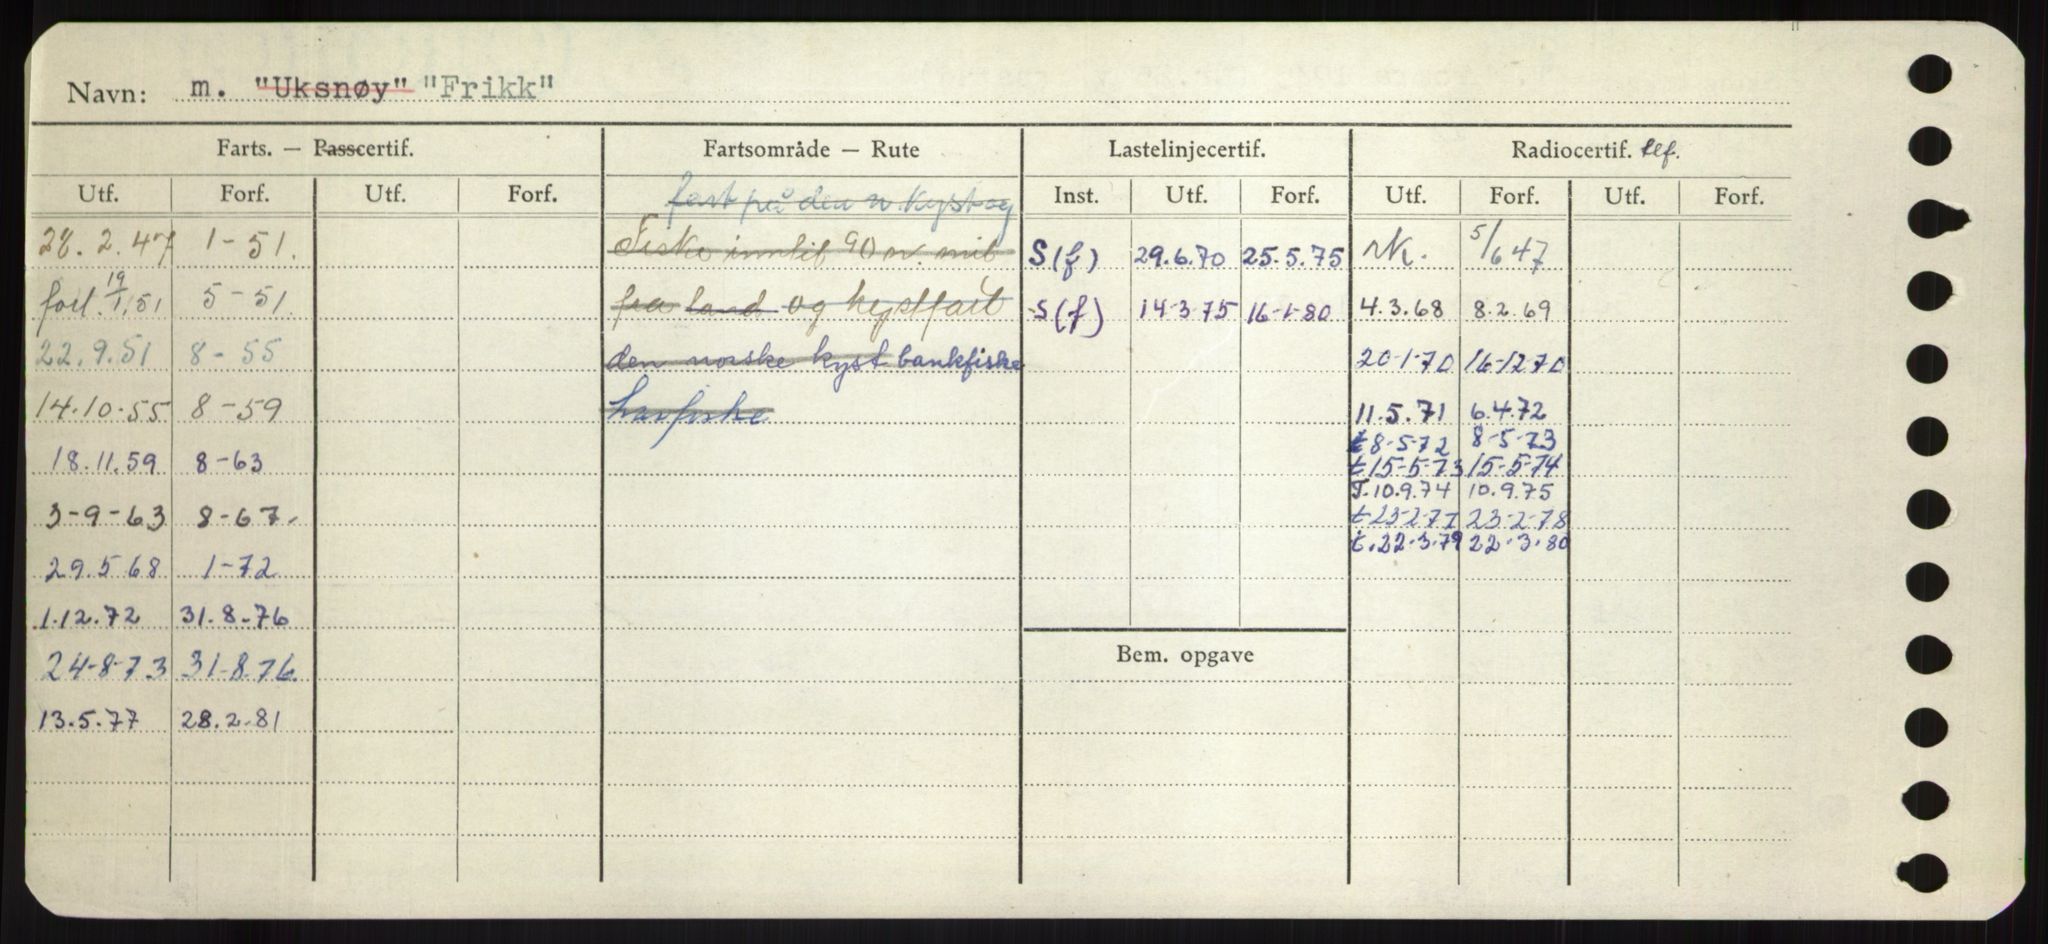 Navn: m. "Uksnøy" "Frikk"
Farts. — Passcertif. Fartsområde — Rute Lastelinjecertif. Radiocertif. tlf.
Utf. Forf. Utf. Forf. fart på den n. kyst og Inst. Utf. Forf. Utf. Forf. Utf. Forf.
28.2.47 1-51. Fiske inntil 90 n. mil S(f) 29.6.70 25.5.75 NK. 5/6 47
forl. 19/1.51 5-51. fra land og kystfart S(f) 14-3-75 16-1-80 4.3.68 8.2.69
22.9.51 8-55 den norske kyst bankfiske 20-1-70 16-12-70
14.10.55 8-59 havfiske 11.5.71 6.4.72
t 8-5-72 8-5-73
18.11.59 8-63 t 15-5-73 15-5-74
T. 10.9.74 10.9.75
3-9-63 8-67. t 23-2-77 23-2-78
t. 22.3.79 22.3.80
29.5 68 1-72
1.12.72 31.8-76
Bem. opgave
24-8-73 31-8.76.
13.5.77 28.2.81